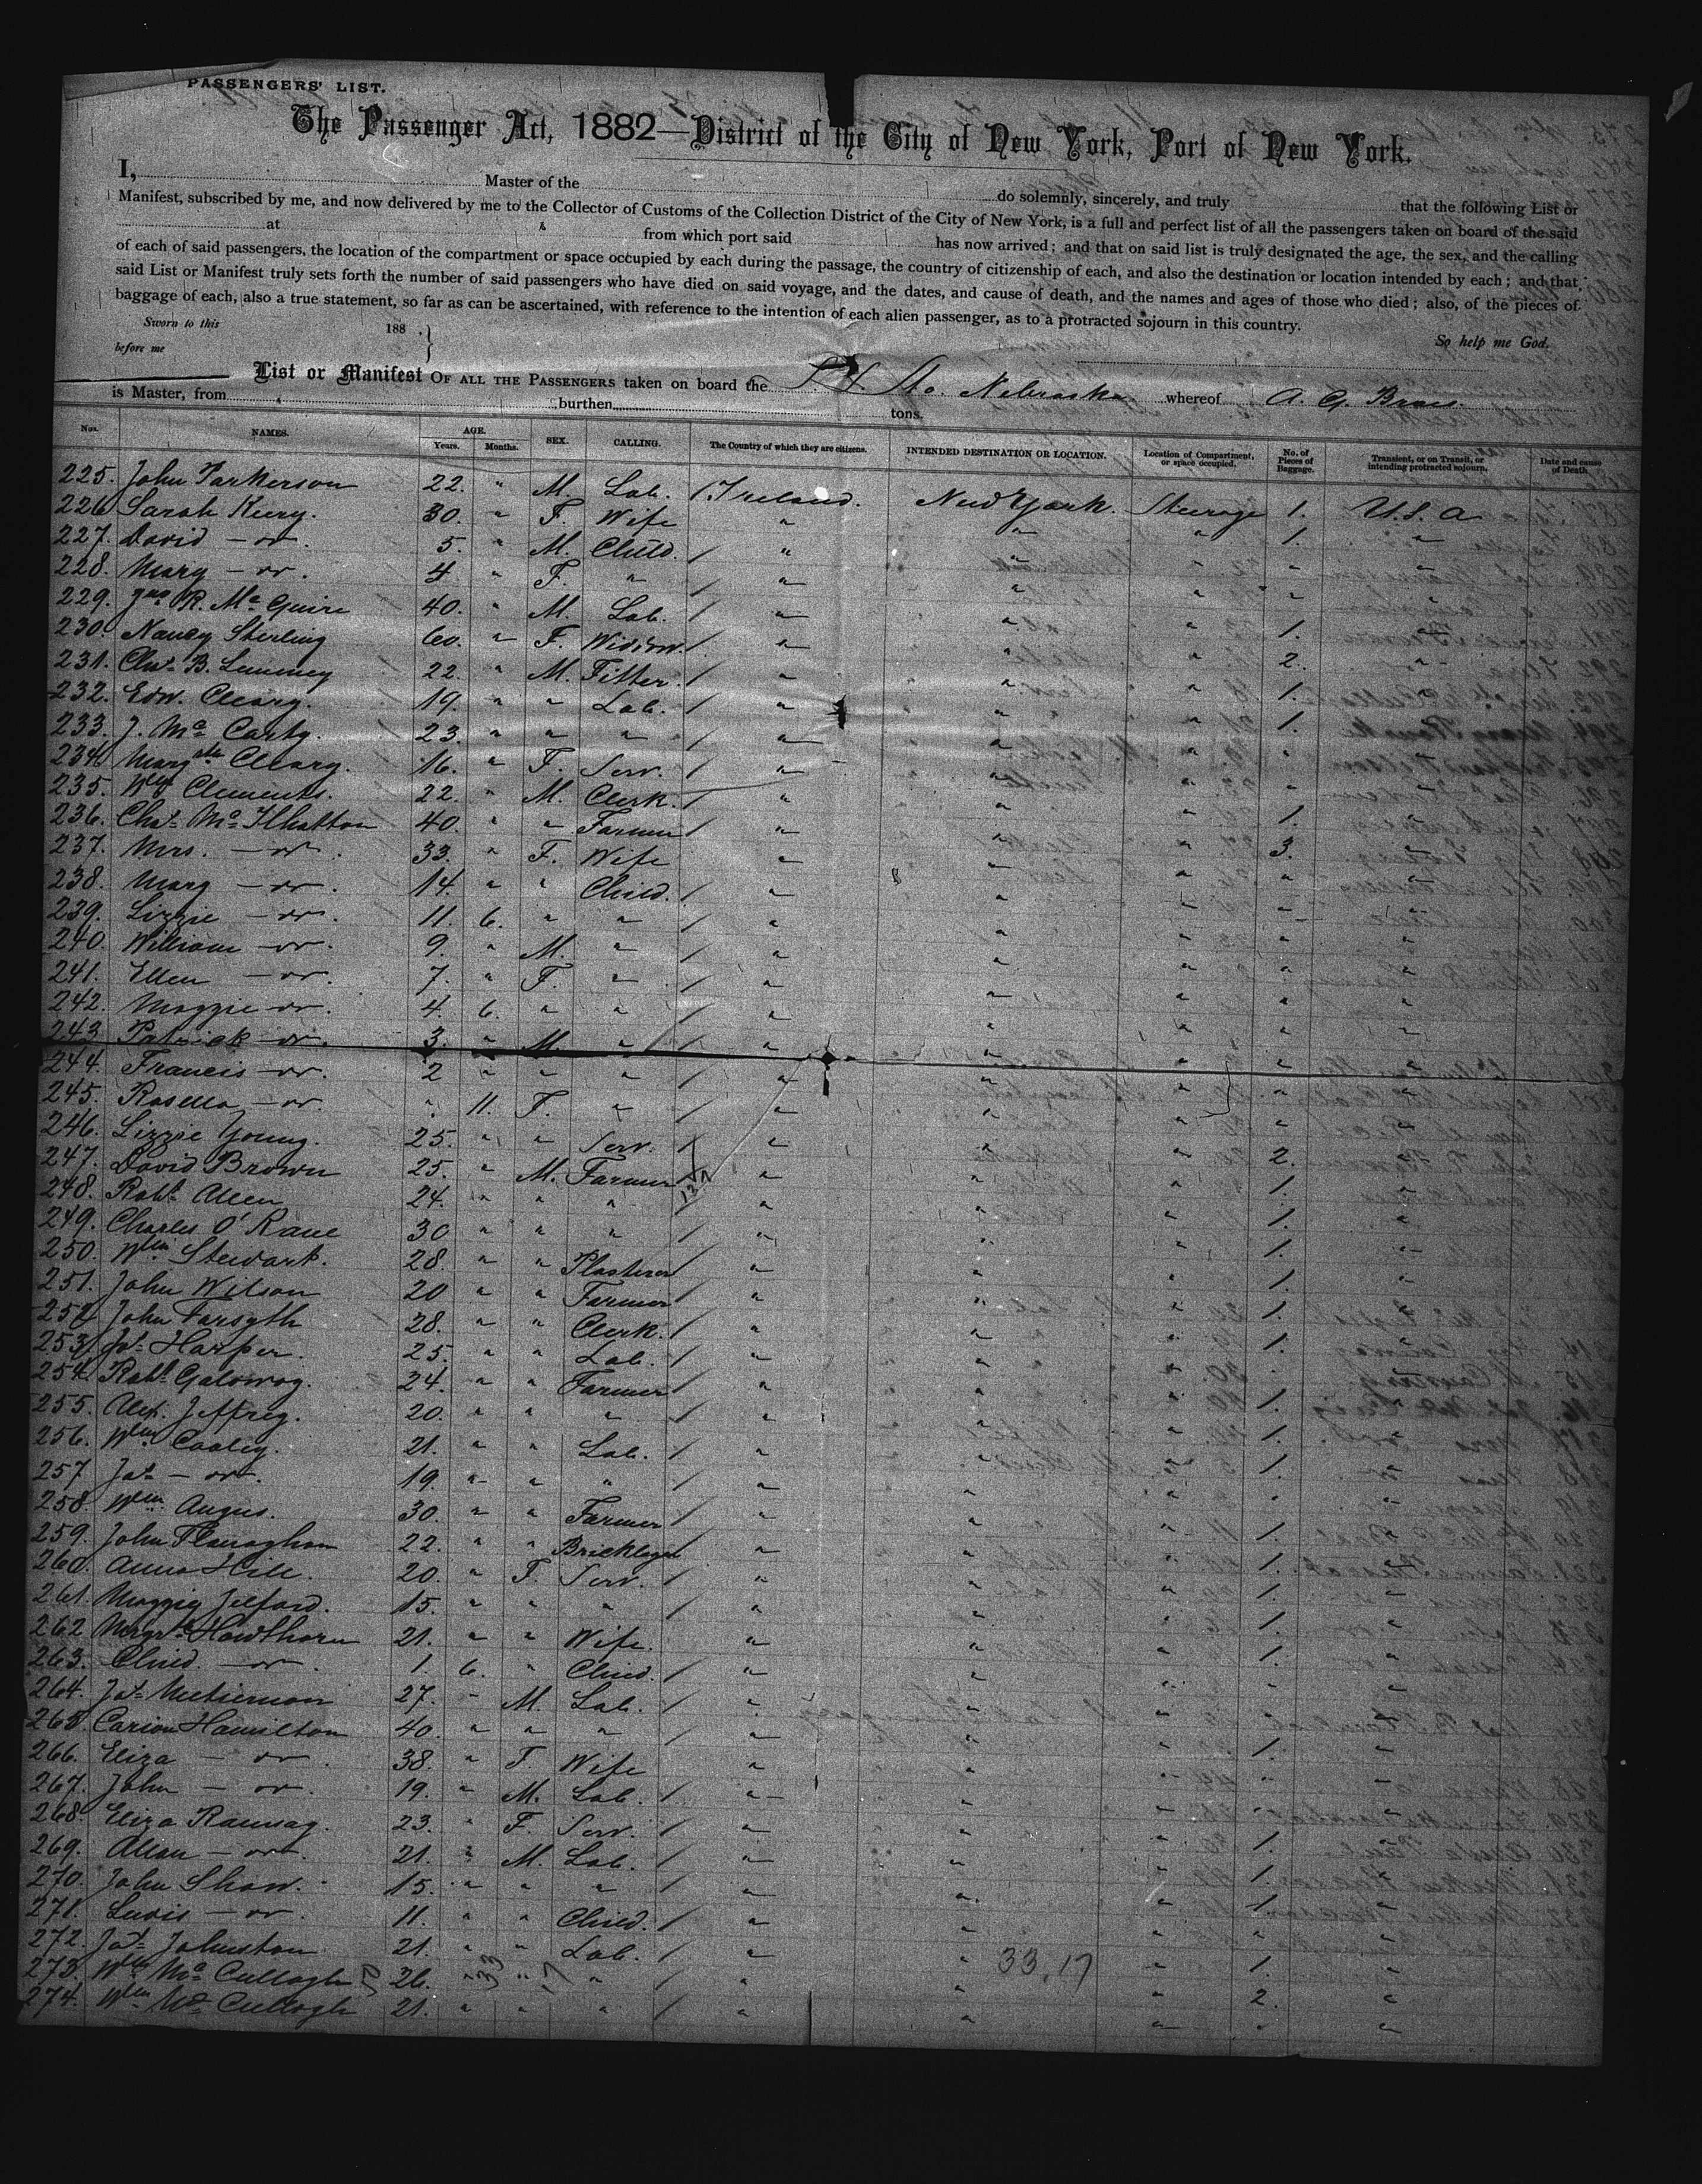 PASSENGERS' LIST.
The Passenger Act, 1882—District of the City of New York, Port of New York.
I, Master of the do solemnly, sincerely, and truly that the following List or
Manifest, subscribed by me, and now delivered by me to the Collector of Customs of the Collection District of the City of New York, is a full and perfect list of all the passengers taken on board of the said
at from which port said has now arrived; and that on said list is truly designated the age, the sex, and the calling
of each of said passengers, the location of the compartment or space occupied by each during the passage, the country of citizenship of each, and also the destination or location intended by each; and that,
said List or Manifest truly sets forth the number of said passengers who have died on said voyage, and the dates, and cause of death, and the names and ages of those who died; also, of the pieces of
baggage of each, also a true statement, so far as can be ascertained, with reference to the intention of each alien passenger, as to a protracted sojourn in this country.
Sworn to this 188 So help me God.
before me
List or Manifest OF ALL THE PASSENGERS taken on board the Nebraska whereof A. G.
is Master, from burthen tons.
Nos. NAMES. AGE. Years. Months. SEX. CALLING. The Country of which they are citizens. INTENDED DESTINATION OR LOCATION. Location of Compartment, or space occupied. No. of Pieces of Baggage. Transient, or on Transit, or intending protracted sojourn. Date and cause of Death.
225. John Parkerson 22. " M. Lab. / Ireland. New York. Steerage 1. U.S.A
226 Sarah Keery. 30. " F. Wife " " " 1. "
227. David — do. 5. " M. Child. / " " " " "
228. Mary — do. 4 " F. " / " " " " "
229. Jno R. Mc Guire 40. " M. Lab. / " " " 1. "
230. Nancy Sterling 60. " F. Widow. / " " " 2. "
231. Chas B. 22. " M. Fitter. / " " " 1. "
232. Edw. Cleary. 19. " " Lab. / " " " 1. "
233. J. Mc Carty. 23. " " " / " " " " "
234. Margt Cleary. 16. " F. Serv. / " " " " "
235. Wm Clements. 22. " M. Clerk. / " " " 1. "
236. Chas Mc Ilhatton 40. " " Farmer / " " " 3. "
237. Mrs. — do. 33. " F. Wife " " " " "
238. Mary — do. 14. " " Child. / " " " " "
239. Lizzie — do. 11. 6. " " / " " " " "
240. William — do. 9. " M. " / " " " " "
241. Ellen — do. 7. " F. " / " " " " "
242. Maggie do. 4. 6. " " / " " " " "
243 Patrick do. 3. " M. " / " " " " "
244. Francis do. 2 " " " / " " " " "
245. Rosella — do. " 11. F. " / " " " " "
246. Lizzie Young. 25. " " Serv. / " " " 2. "
247. David Brown 25. " M. Farmer / " " " 1. "
248. Robt Allen 24. " " " / " " " 1. "
249. Charles O'Kane 30 " " " / " " " 1. "
250. Wm Stewart. 28. " " Plasterer / " " " 1. "
251. John Wilson 20 " " Farmer / " " " 1. "
252 John Forsyth 28. " " Clerk. / " " " 1. "
253. Jas Harper. 25. " " Lab. / " " " "
254. Robt Galoway. 24. " " Farmer / " " " 1. "
255. Alex. Jeffrey. 20. " " " / " " " 1. "
256. Wm Cooley. 21. " " Lab. / " " " 1. "
257 Jas — do. 19. " " " / " " " " "
258. Wm Angus. 30. " " Farmer / " " " 1. "
259. John Flanaghan 22. " " Bricklayer " " " 1. "
260. Anna Hill. 20. " F. Serv. / " " " 1. "
261. Maggie Jelford. 15. " " " / " " " 1. "
262 Margrt Hawthorn 21. " " Wife. " " " " "
263. Child — do. 1. 6. " Child. / " " " " "
264. Jas 27. " M. Lab. / " " " "
265. Hamilton 40. " " " / " " " 1. "
266. Eliza — do. 38. " F. Wife " " " " "
267. John — do. 19. " M. Lab. / " " " " "
268. Eliza Ramsay. 23. " F. Serv. / " " " 1. "
269. Allan — do. 21. " M. Lab. / " " " 1. "
270. John Shaw. 15. " " " / " " " 1. "
271. Lewis — do. 11. " " Child. / " " " " "
272. Jas Johnston. 21. " " Lab. / " " 33,17 " 1. "
273. Wm Mc Cullogh 26. " " " / " " " 2. "
274. Wm Mc Cullogh 21. " " " / " " " " "